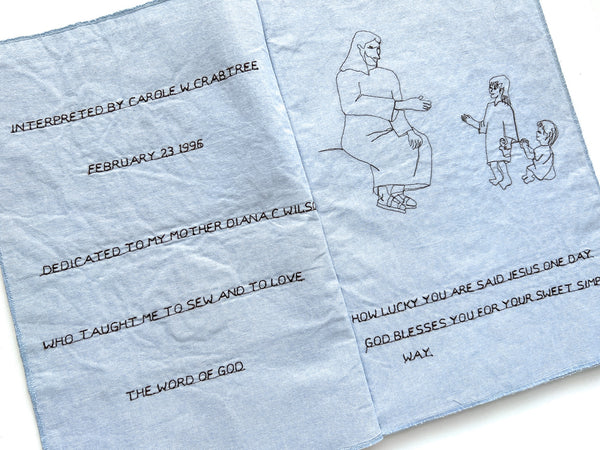 INTERPRETED BY CAROLE W. CRABTREE
FEBRUARY 23 1996
DEDICATED TO MY MOTHER DIANA C WILSO
WHO TAUGHT ME TO SEW AND TO LOVE
THE WORD OF GOD
HOW LUCKY YOU ARE SAID JESUS ONE DAY.
GOD BLESSES YOU FOR YOUR SWEET SIMP
WAY.